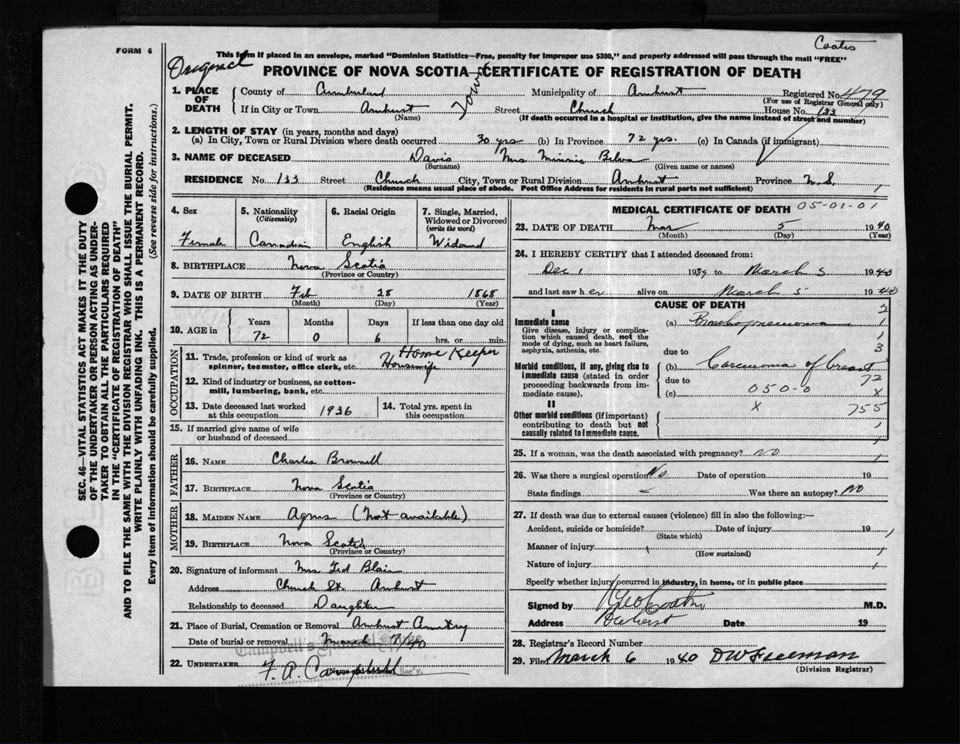 Coates
FORM 6
This form if placed in an envelope, marked "Dominion Statistics—Free, penalty for improper use $300," and properly addressed will pass through the mail "FREE"
Original
PROVINCE OF NOVA SCOTIA—CERTIFICATE OF REGISTRATION OF DEATH
1. PLACE OF DEATH
County of Cumberland Municipality of Amherst Registered No. 479
(For use of Registrar General only)
If in City or Town Amherst Town Street Church House No. 133
(Name) (If death occurred in a hospital or institution, give the name instead of street and number)
2. LENGTH OF STAY (in years, months and days)
(a) In City, Town or Rural Division where death occurred 30 yrs (b) In Province 72 yrs. (c) In Canada (if immigrant)
3. NAME OF DECEASED Davis Mrs Minnie
(Surname) (Given name or names)
RESIDENCE No. 133 Street Church City, Town or Rural Division Amherst Province N.S.
(Residence means usual place of abode. Post Office Address for residents in rural parts not sufficient)
4. Sex 5. Nationality (Citizenship) 6. Racial Origin 7. Single, Married, Widowed or Divorced (write the word)
Female Canadian English Widowed
8. BIRTHPLACE Nova Scotia
(Province or Country)
9. DATE OF BIRTH Feb 28 1868
(Month) (Day) (Year)
10. AGE in Years Months Days If less than one day old
72 0 6 hrs. or min.
OCCUPATION
11. Trade, profession or kind of work as spinner, teamster, office clerk, etc. Home Keeper Housewife
12. Kind of industry or business, as cotton-mill, lumbering, bank, etc.
13. Date deceased last worked at this occupation 1936 14. Total yrs. spent in this occupation
15. If married give name of wife or husband of deceased
FATHER
16. NAME Charles Brownell
17. BIRTHPLACE Nova Scotia
(Province or Country)
MOTHER
18. MAIDEN NAME Agnes (Not available)
19. BIRTHPLACE Nova Scotia
(Province or Country)
20. Signature of informant Mrs Ted Blair
Address Church St. Amherst
Relationship to deceased Daughter
21. Place of Burial, Cremation or Removal Amherst
Date of burial or removal March 7/40
Campbell's Funeral Home
22. UNDERTAKER F. A. Campbell
MEDICAL CERTIFICATE OF DEATH 05-01-01
23. DATE OF DEATH Mar 5 1940
(Month) (Day) (Year)
24. I HEREBY CERTIFY that I attended deceased from:
Dec 1 1939 to March 5 1940
and last saw her alive on March 5 1940
CAUSE OF DEATH
I
Immediate cause (a) Bronchopneumonia
Give disease, injury or complication which caused death, not the mode of dying, such as heart failure, asphyxia, asthenia, etc.
due to
Morbid conditions, if any, giving rise to immediate cause (stated in order proceeding backwards from immediate cause).
(b) Carcinoma of breast
due to
(c) 050-0
2
1
3
72
X
II
Other morbid conditions (if important) contributing to death but not causally related to immediate cause.
X 755
25. If a woman, was the death associated with pregnancy? no
26. Was there a surgical operation No Date of operation 19
State findings Was there an autopsy? No
27. If death was due to external causes (violence) fill in also the following:—
Accident, suicide or homicide? Date of injury 19
(State which)
Manner of injury
(How sustained)
Nature of injury
Specify whether injury occurred in industry, in home, or in public place
Signed by Geo Coates M.D.
Address Amherst Date 19
28. Registrar's Record Number
29. Filed March 6 1940 DW Freeman
(Division Registrar)
SEC. 46—VITAL STATISTICS ACT MAKES IT THE DUTY
OF THE UNDERTAKER OR PERSON ACTING AS UNDER-
TAKER TO OBTAIN ALL THE PARTICULARS REQUIRED
IN THE "CERTIFICATE OF REGISTRATION OF DEATH"
AND TO FILE THE SAME WITH THE DIVISION REGISTRAR WHO SHALL ISSUE THE BURIAL PERMIT.
WRITE PLAINLY WITH UNFADING INK. THIS IS A PERMANENT RECORD.
Every item of information should be carefully supplied. (See reverse side for instructions.)